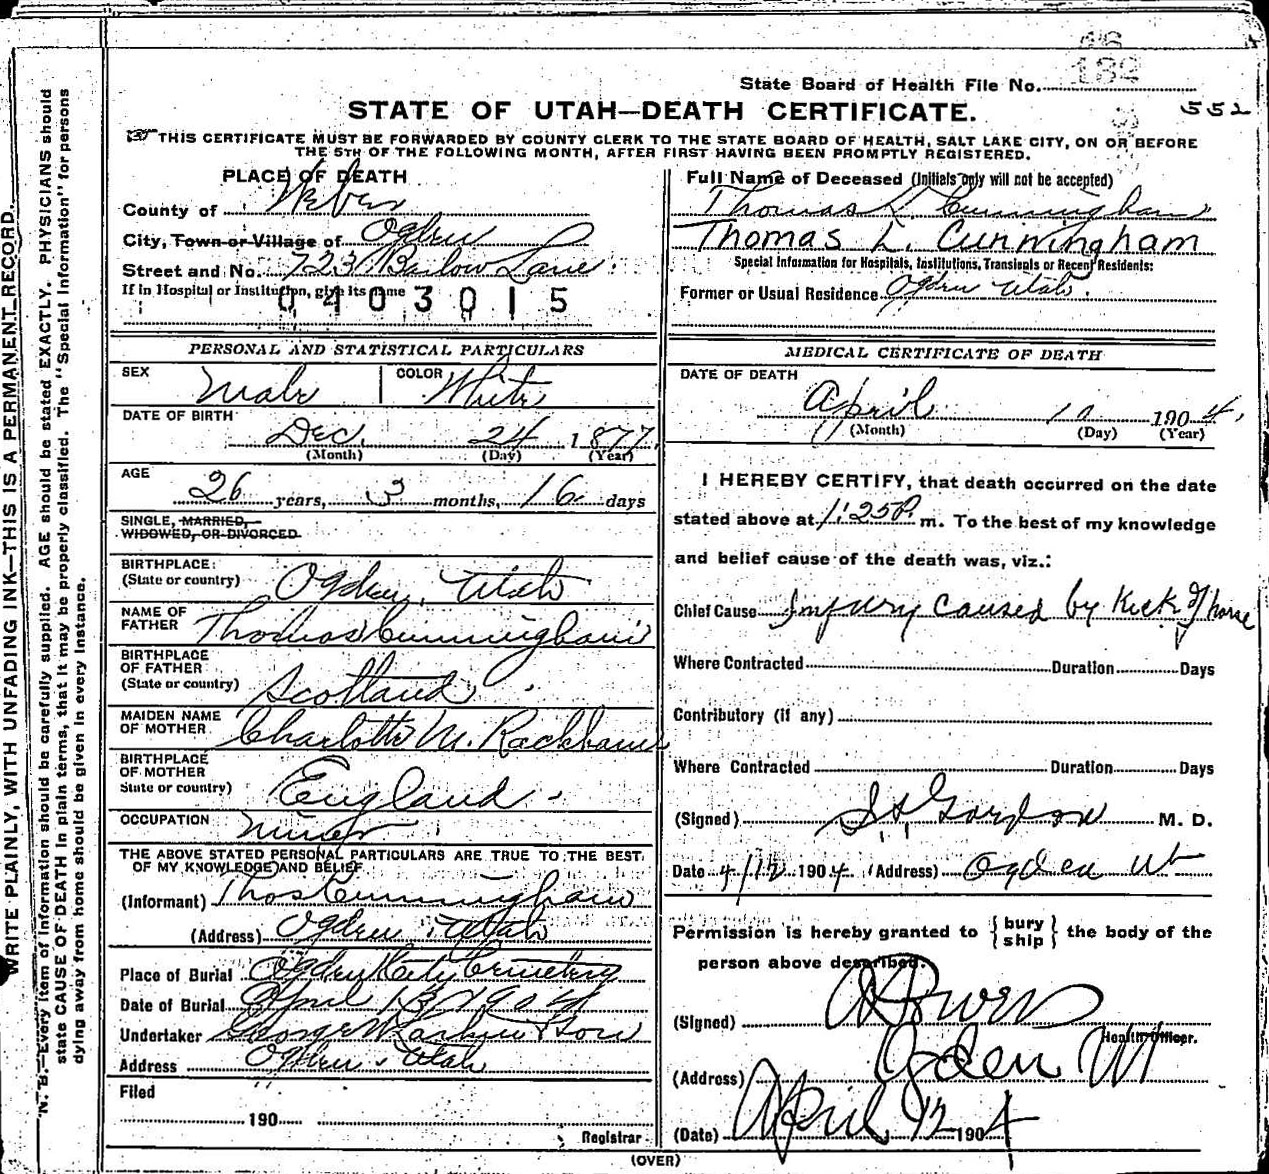 WRITE PLAINLY, WITH UNFADING INK—THIS IS A PERMANENT RECORD.
N. B.—Every item of information should be carefully supplied. AGE should be stated EXACTLY. PHYSICIANS should
state CAUSE OF DEATH in plain terms, that it may be properly classified. The "Special Information" for persons
dying away from home should be given in every instance.
State Board of Health File No. 182
STATE OF UTAH—DEATH CERTIFICATE.
552
THIS CERTIFICATE MUST BE FORWARDED BY COUNTY CLERK TO THE STATE BOARD OF HEALTH, SALT LAKE CITY, ON OR BEFORE
THE 5TH OF THE FOLLOWING MONTH, AFTER FIRST HAVING BEEN PROMPTLY REGISTERED.
PLACE OF DEATH
County of Weber
City, Town or Village of Ogden
Street and No. 723 Barlow Lane
If in Hospital or Institution, give its name
0403015
Full Name of Deceased (Initials only will not be accepted)
Thomas L. Cunningham
Thomas L. Cunningham
Special Information for Hospitals, Institutions, Transients or Recent Residents:
Former or Usual Residence Ogden Utah.
PERSONAL AND STATISTICAL PARTICULARS
SEX Male COLOR White
DATE OF BIRTH
Dec. 24 1877
(Month) (Day) (Year)
AGE
26 years, 3 months, 16 days
SINGLE, MARRIED,
WIDOWED, OR DIVORCED
BIRTHPLACE:
(State or country) Ogden, Utah
NAME OF
FATHER Thomas Cunningham
BIRTHPLACE
OF FATHER
(State or country) Scotland
MAIDEN NAME
OF MOTHER Charlotte M. Rackham
BIRTHPLACE
OF MOTHER
State or country) England
OCCUPATION Miner
THE ABOVE STATED PERSONAL PARTICULARS ARE TRUE TO THE BEST
OF MY KNOWLEDGE AND BELIEF
(Informant) Thos Cunningham
(Address) Ogden Utah
Place of Burial Ogden City Cemetery
Date of Burial April 13 1904
Undertaker George W. Larkin & Son
Address Ogden Utah
Filed
190
Registrar
MEDICAL CERTIFICATE OF DEATH
DATE OF DEATH
April 1904,
(Month) (Day) (Year)
I HEREBY CERTIFY, that death occurred on the date
stated above at 1:25 P. m. To the best of my knowledge
and belief cause of the death was, viz.:
Chief Cause Injury caused by Kick of horse
Where Contracted Duration Days
Contributory (if any)
Where Contracted Duration Days
(Signed) Gordon M. D.
Date 4/12 1904 (Address) Ogden Ut
Permission is hereby granted to {bury ship} the body of the
person above described.
(Signed)
Health Officer.
(Address) Ogden Ut
(Date) April 12 1904
(OVER)